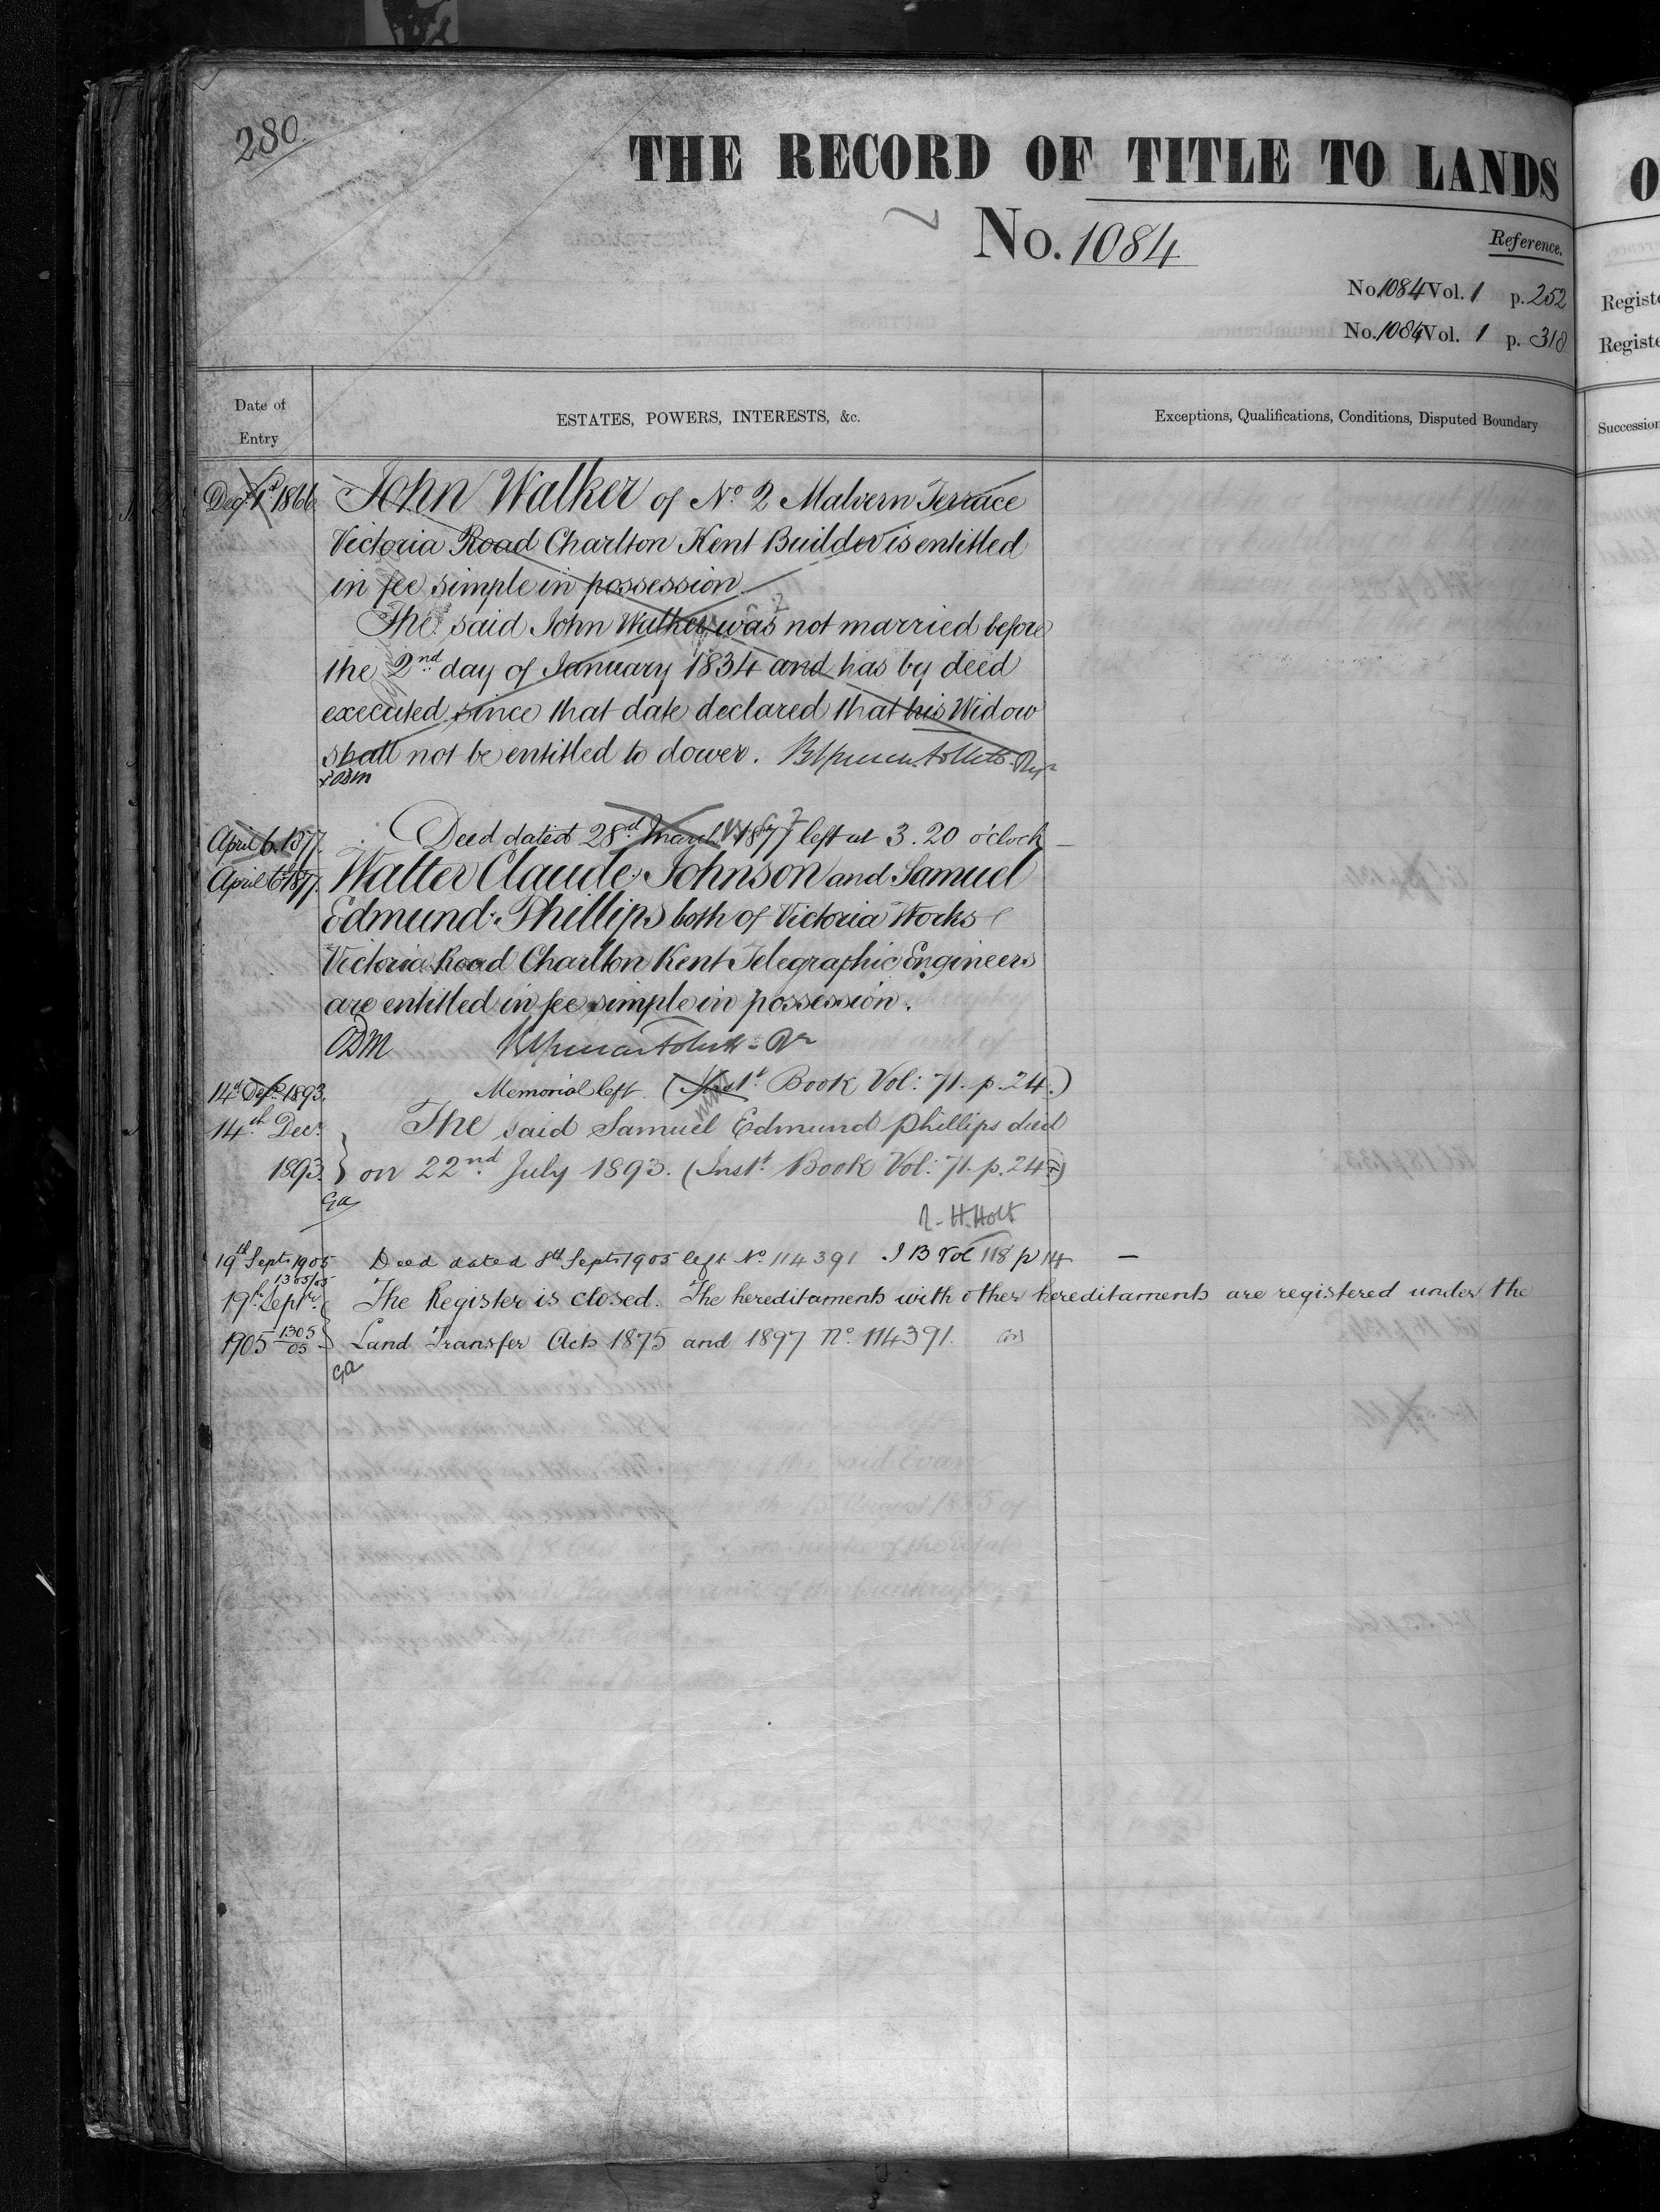 280
THE RECORD OF TITLE TO LANDS
No. 1084
Reference.
No. 1084 Vol. 1 p. 252
No. 1084 Vol. 1 p. 318
Date of Entry
ESTATES, POWERS, INTERESTS, &c.
Exceptions, Qualifications, Conditions, Disputed Boundary
Decr 1st 1866 John Walker of No 2 Malvern Terrace
Victoria Road Charlton Kent Builder is entitled
in fee simple in possession.
The said John Walker was not married before
the 2nd day of January 1834 and has by deed
executed since that date declared that his Widow
shall not be entitled to dower.
April 6. 1877. Deed dated 28th March 1877 left at 3.20 o'clock
April 6th 1877. Walter Claude Johnson and Samuel
Edmund Phillips both of Victoria Works
Victoria Road Charlton Kent Telegraphic Engineers
are entitled in fee simple in possession.
ODM
14th Decr 1893. Memorial left. (Inst. Book Vol: 71. p. 24.)
14th Decr The said Samuel Edmund Phillips died
1893. on 22nd July 1893. (Inst. Book Vol: 71. p. 24)
Ga
R. H. Holt
19th Sept 1905 Deed dated 8th Sept 1905 left No 114391 I B Vol 118 p 114 —
1305/05
19th Septr. The Register is closed. The hereditaments with other hereditaments are registered under the
1905 1305/05 Land Transfer Acts 1875 and 1897 No. 114391.
Ga
O
Registe
Registe
Succession